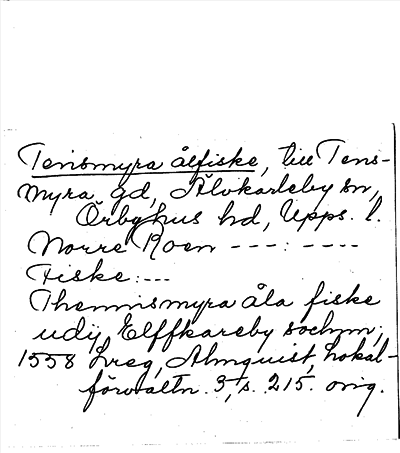 Tensmyra ålfiske, till Tens-
myra gd, Älvkarleby sn,
Örbyhus hd, Upps. l.
Norre Roen ---:----
Fiske:---
Thennismyra åla fiske
udij Elffkareby sochnn;
1558 Åreg, Almquist, Lokal-
förvaltn. 3, s. 215. orig.